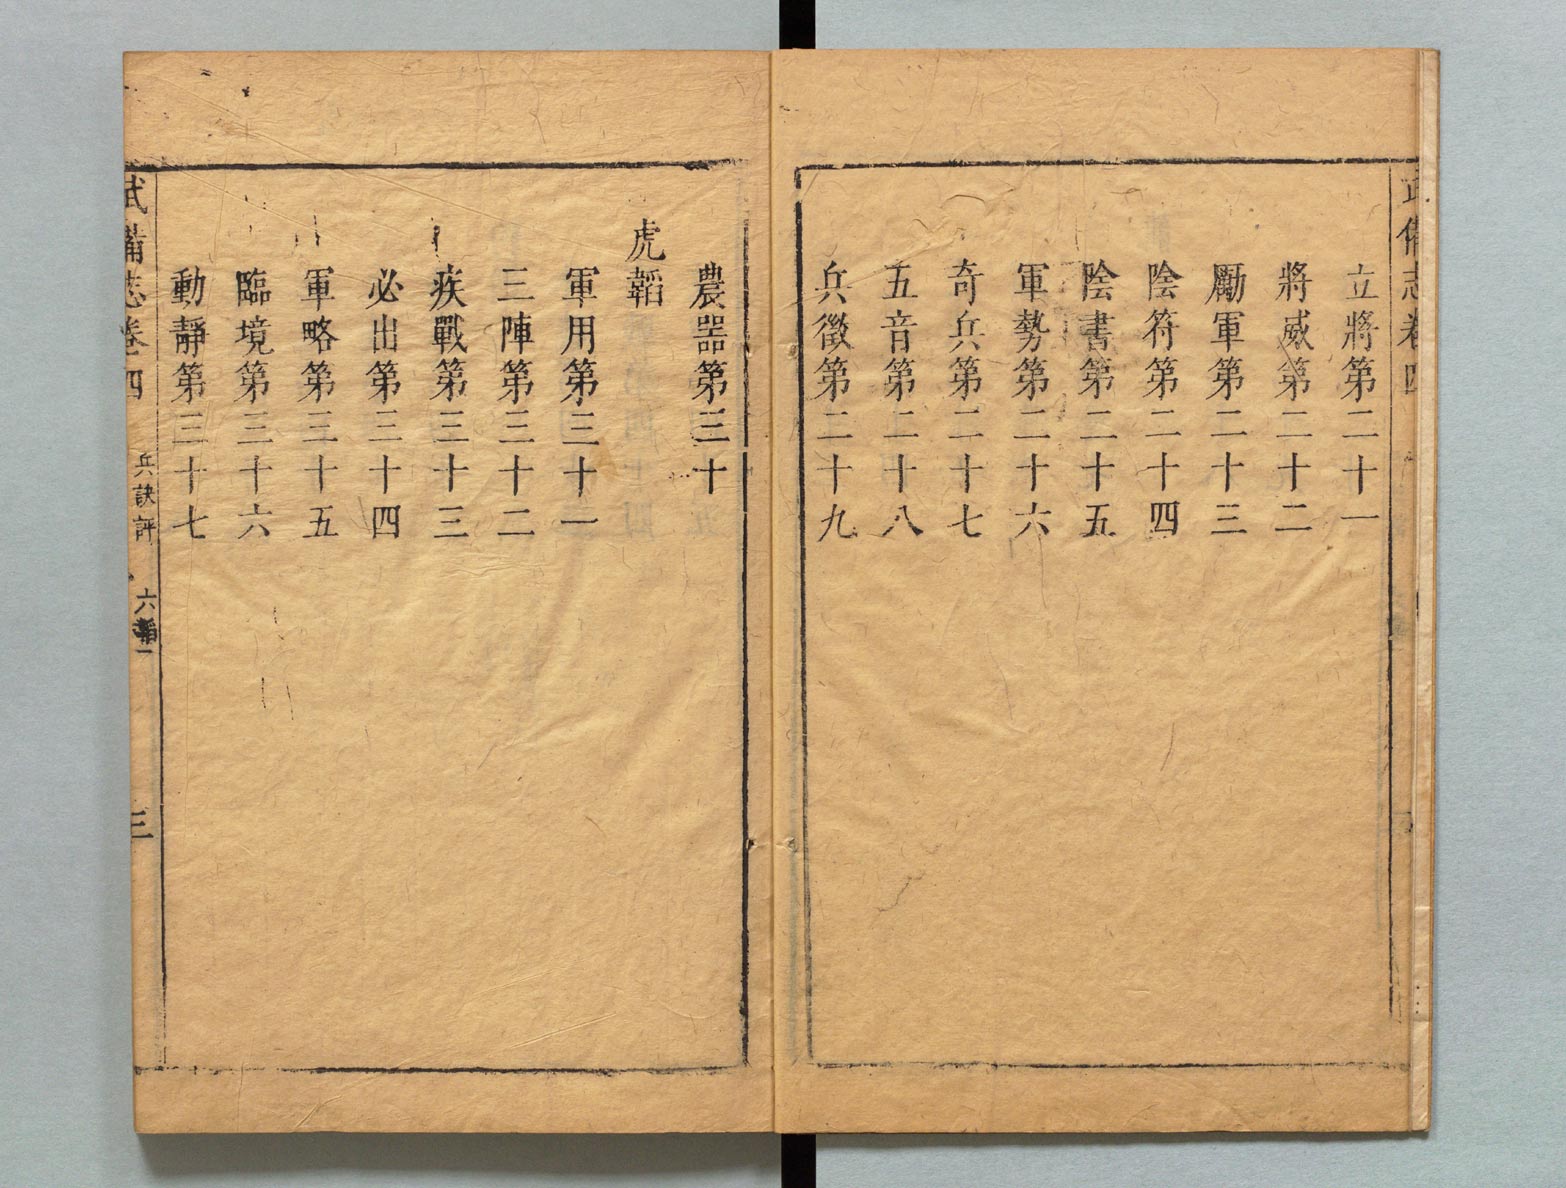 武備志卷四
立將第二十一
將威第二十二
勵軍第二十三
陰符第二十四
陰書第二十五
軍勢第二十六
奇兵第二十七
五音第二十八
兵徵第二十九
農器第三十
虎韜
軍用第三十一
三陣第三十二
疾戰第三十三
必出第三十四
軍略第三十五
臨境第三十六
動靜第三十七
武備志卷四 兵訣評 六韜一 三